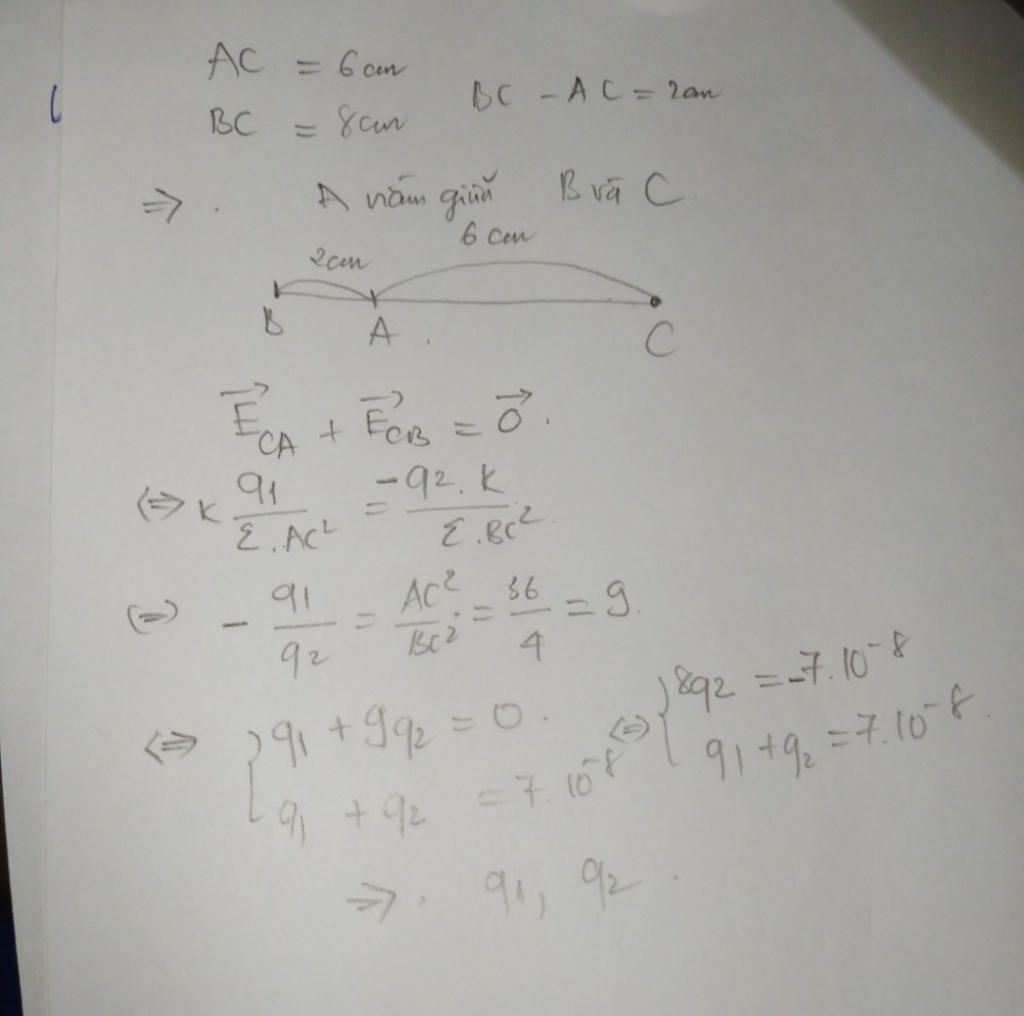 AC = 6cm
BC = 8cm
BC - AC = 2cm
⇒ . A nằm giữa B và C.
2cm 6cm
B A . C
E⃗_CA + E⃗_CB = 0⃗ .
⇔ K q1 / (Σ.AC²) = -q2.K / (Σ.BC²)
⇔ - q1/q2 = AC²/BC² = 36/4 = 9.
⇔ { q1 + 9q2 = 0. ⇔ { 8q2 = -7.10⁻⁸
q1 + q2 = 7.10⁻⁸ q1 + q2 = 7.10⁻⁸.
⇒ . q1, q2 .